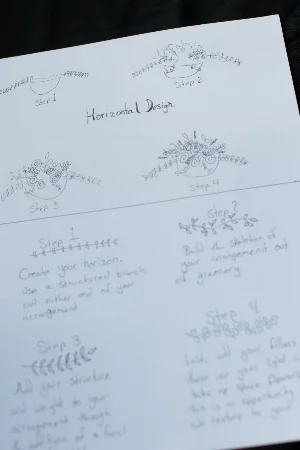 Step 1
Step 2
Horizontal Design
Step 3
Step 4
Step 1
Create your horizon.
Use a structured branch
out either end of your
arrangement
Step 2
Build the skeleton of
your arrangement out
of greenery
Step 3
Add your structure
and weight to your
arrangement through
Step 4
Last, add your fillers
take up space
this is an opportunity
to your